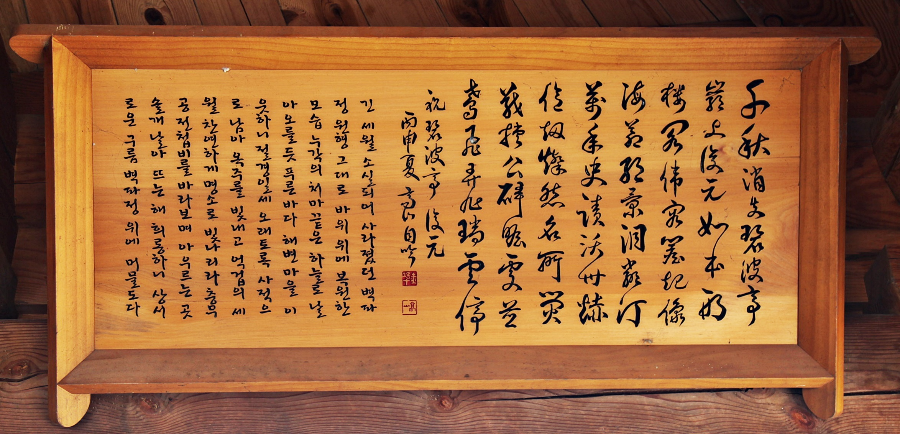 千秋消失碧波亭
巖上復元如本形
樓閣偉容簷起像
海 景 汀
萬年史蹟沃州赫
燦然名所
戰捷公碑瞻更並
鳶飛弄旭瑞雲停
祝碧波亭復元
丙申夏 自吟
긴 세월 소실되어 사라졌던 벽파
정 원형 그대로 바위 위에 복원한
모습 누각의 처마끝은 하늘로 날
아오를듯 푸른바다 해변마을 이
웃하니 절경일세 오래토록 사적으
로 남아 옥주를 빛내고 억겁의 세
월 찬연하게 명소로 빛나리라 충무
공전첩비를 바라보며 아우르는 곳
솔개 날아 뜨는 해 희롱하니 상서
로운 구름 벽파정 위에 머물도다